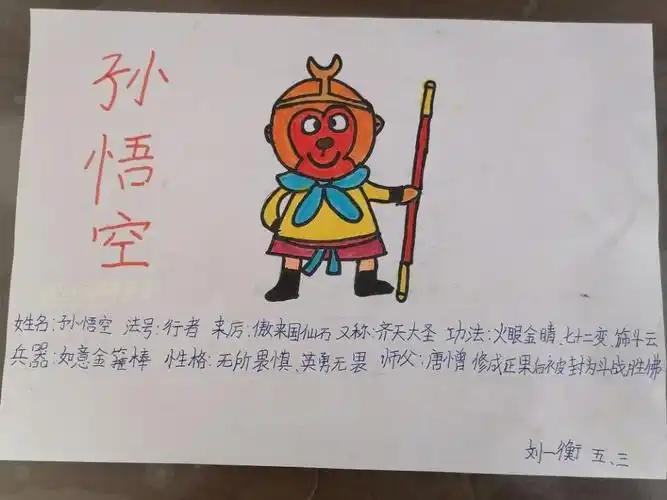 孙悟空
姓名:孙悟空 法号:行者 来历:傲来国仙石 又称:齐天大圣 功法:火眼金睛、七十二变、筋斗云
兵器:如意金箍棒 性格:无所畏惧、英勇无畏 师父:唐僧 修成正果后被封为斗战胜佛
刘一衡 五、三